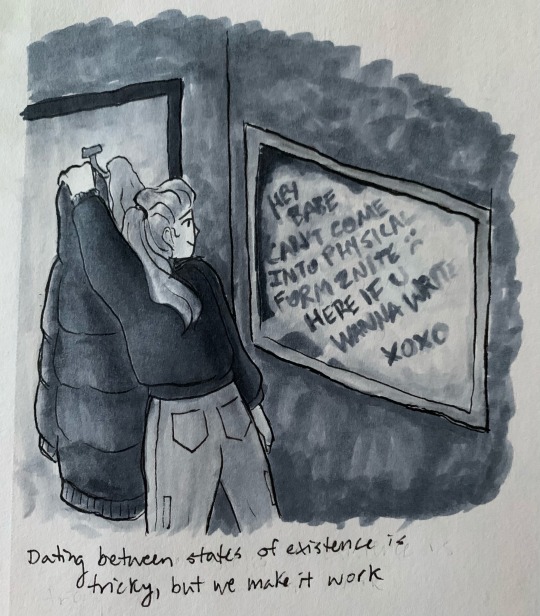 HEY
BABE
CAN'T COME
INTO PHYSICAL
FORM 2NITE :(
HERE IF U
WANNA WRITE
XOXO
Dating between states of existence is
tricky, but we make it work